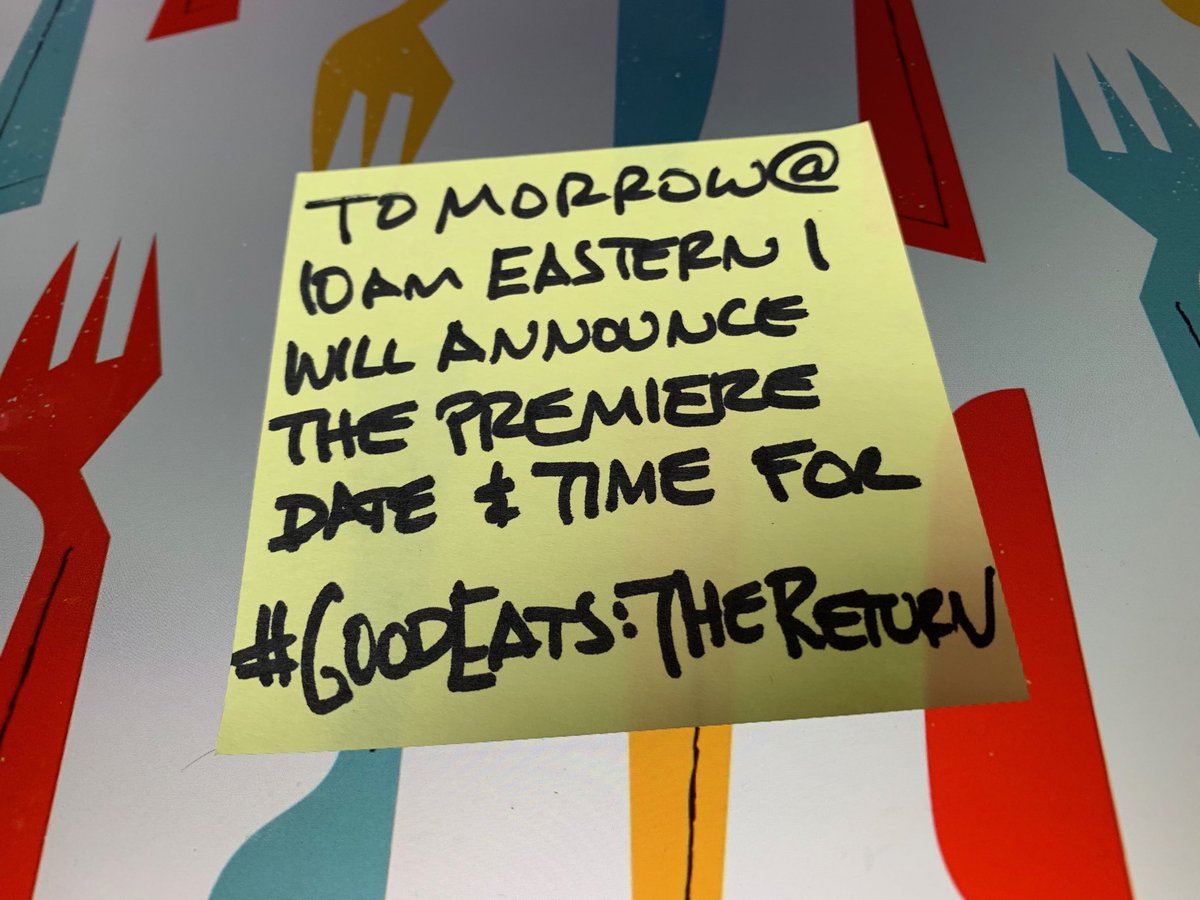 TOMORROW @
10AM EASTERN I
WILL ANNOUNCE
THE PREMIERE
DATE & TIME FOR
#GOODEATS:THERETURN